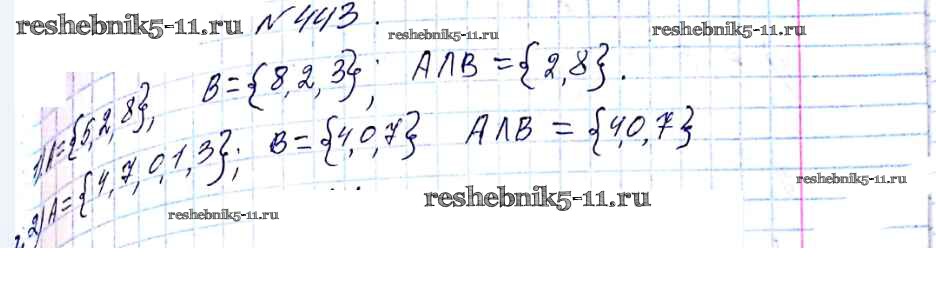 reshebnik5-11.ru № 443. reshebnik5-11.ru reshebnik5-11.ru
1) A = {5, 2, 8}, B = {8, 2, 3}; A∩B = {2, 8}.
2) A = {4, 7, 0, 1, 3}; B = {4, 0, 7} A∩B = {4, 0, 7}
reshebnik5-11.ru reshebnik5-11.ru reshebnik5-11.ru